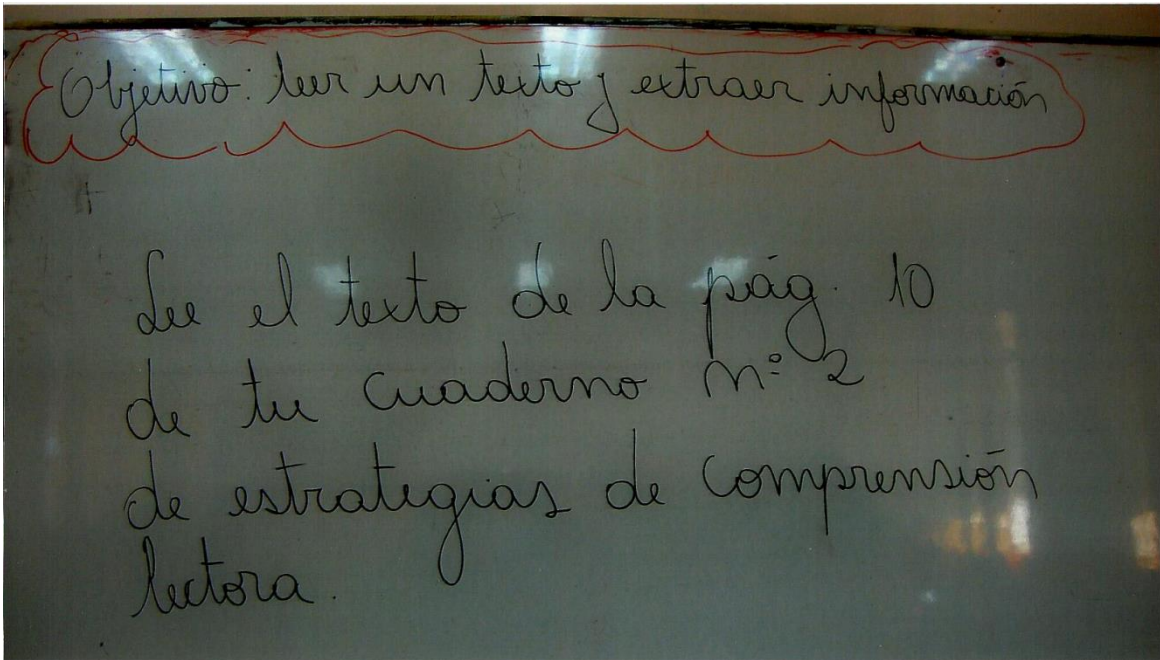 Objetivo: leer un texto y extraer información
Lee el texto de la pág. 10
de tu cuaderno nº 2
de estrategias de comprensión
lectora.